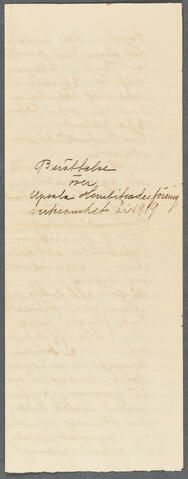 Berättelse
över
Upsala Hembiträdesförening
verksamhet år 1919